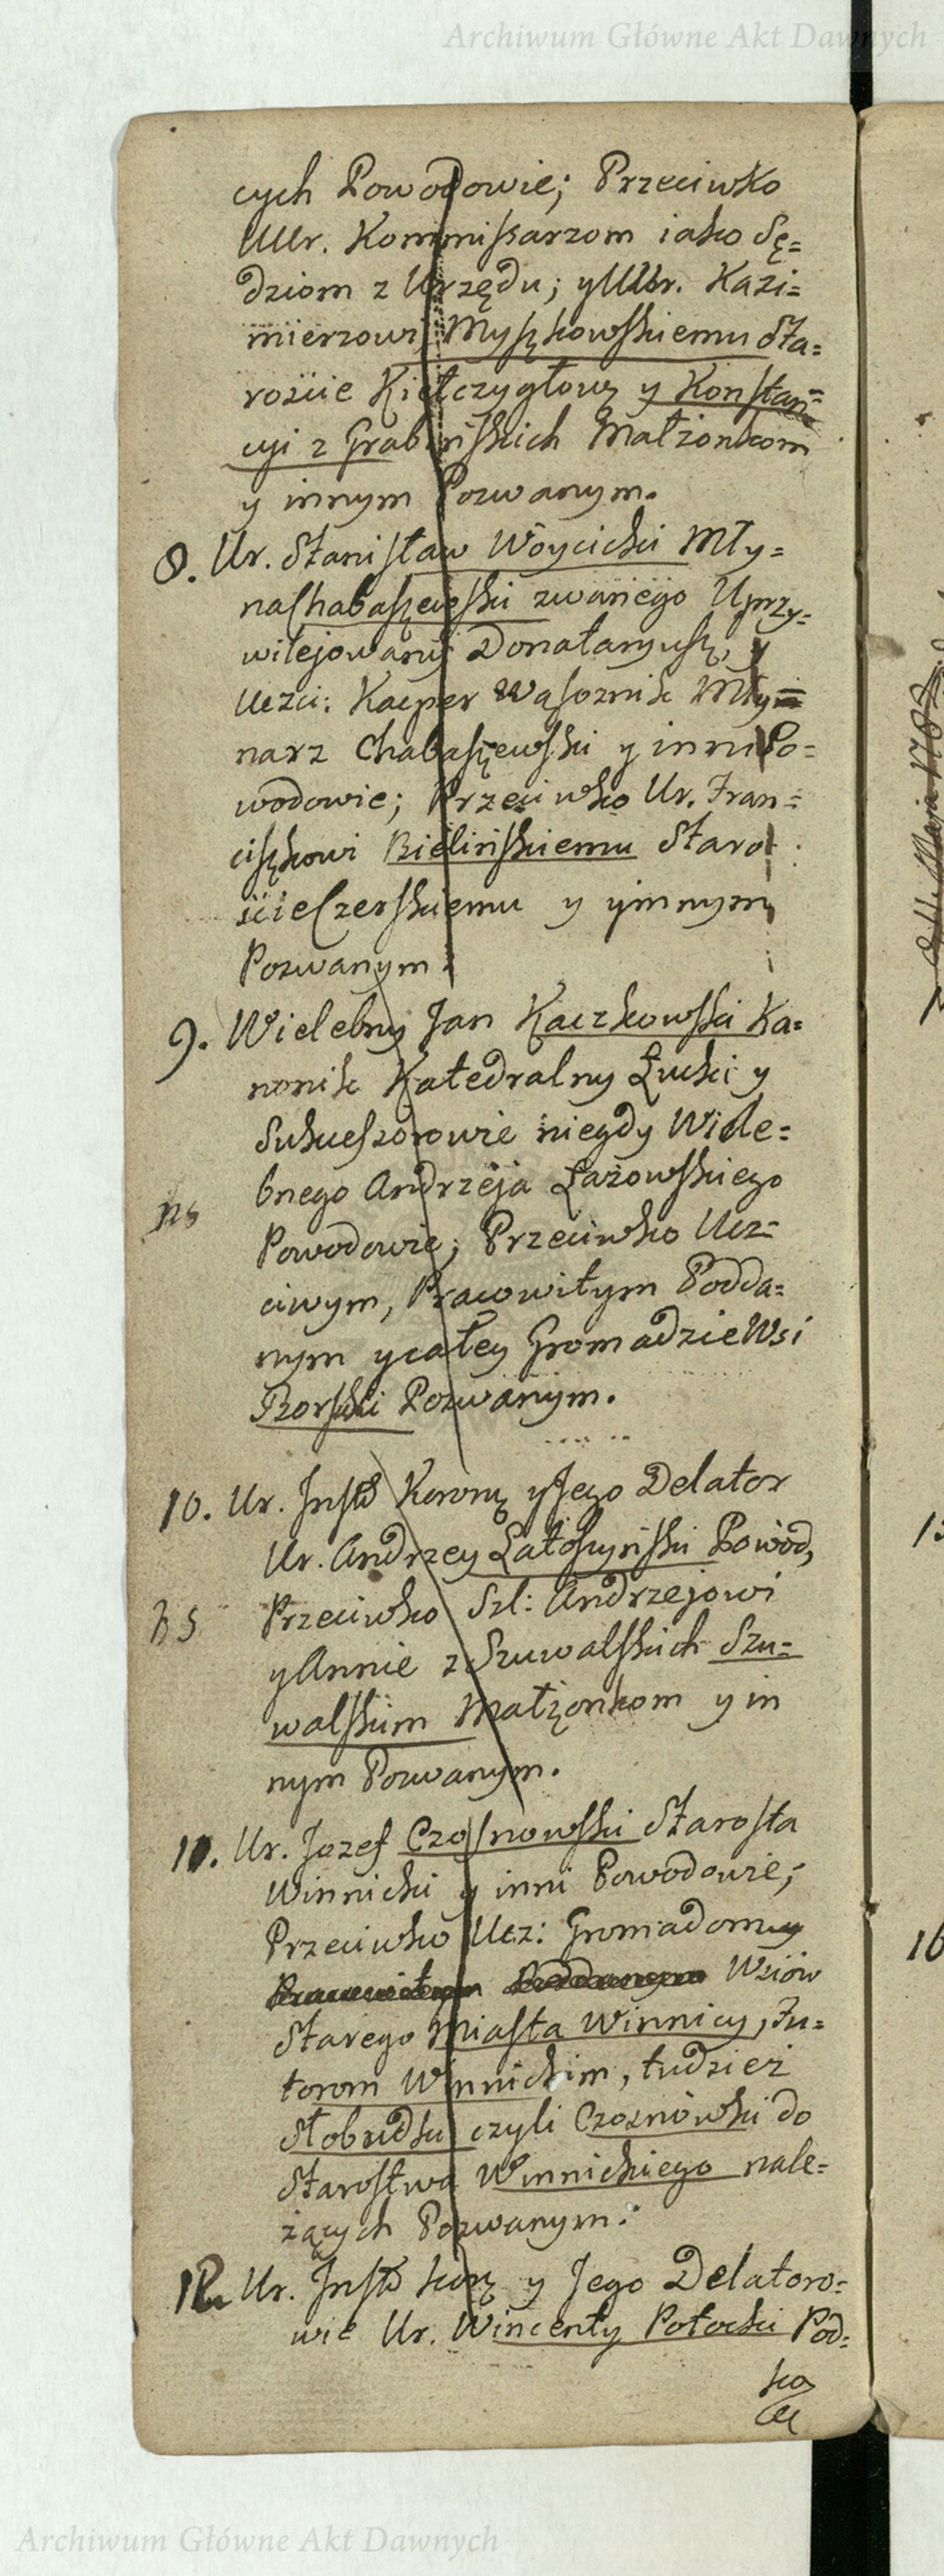 Archiwum Główne Akt Dawnych
cych Powodowie; Przeciwko
UUr. Kommissarzom iako Sę=
dziom z Urzędu; y UUr. Kazi=
mierzowi Myszkowskiemu Sta=
rościie Kiełczygłows y Konstan=
cyi z Grabińskich Małżonkom
y innym Pozwanym.
8. Ur. Stanisław Woycicki Mły=
na Chabaszewski zwanego Uprzy=
wilejowany Donataryusz, y
Uczci: Kacper Wąsoznik Mły=
narz Chabaszewski y inni Po=
wodowie; Przeciwko Ur. Fran=
ciszkowi Bielińskiemu Staro
ście Czerskiemu y ymnym
Pozwanym.
9. Wielebny Jan Kaczkowski Ka=
nonik Katedralny Łucki y
Sukcessorowie niegdy Wiele=
bnego Andrzeja Łazowskiego
ns
Powodowie; Przeciwko Ucz=
ciwym, Pracowitym Podda=
nym y całey Gromadzie Wsi
Borski Pozwanym.
10. Ur. Instr Koronny y Jego Delator
Ur. Andrzey Latoszyński Powód,
Przeciwko Szl: Andrzejowi
y Annie z Suwalskich Szu=
walskim Małżonkom y in
nym Pozwanym.
11. Ur. Jozef Czosnowski Starosta
Winnicki y inni Powodowie;
Przeciwko Ucz: Gromadom y
Pracowitym Poddanym Wsiów
Starego Miasta Winnicy, Fu=
torom Winnickim, tudzież
Słobudki czyli Czosnówki do
Starostwa Winnickiego nale=
żących Pozwanym.
12. Ur. Instr kony y Jego Delatoro=
wie Ur. Wincenty Potocki Pod=
ko
Archiwum Główne Akt Dawnych